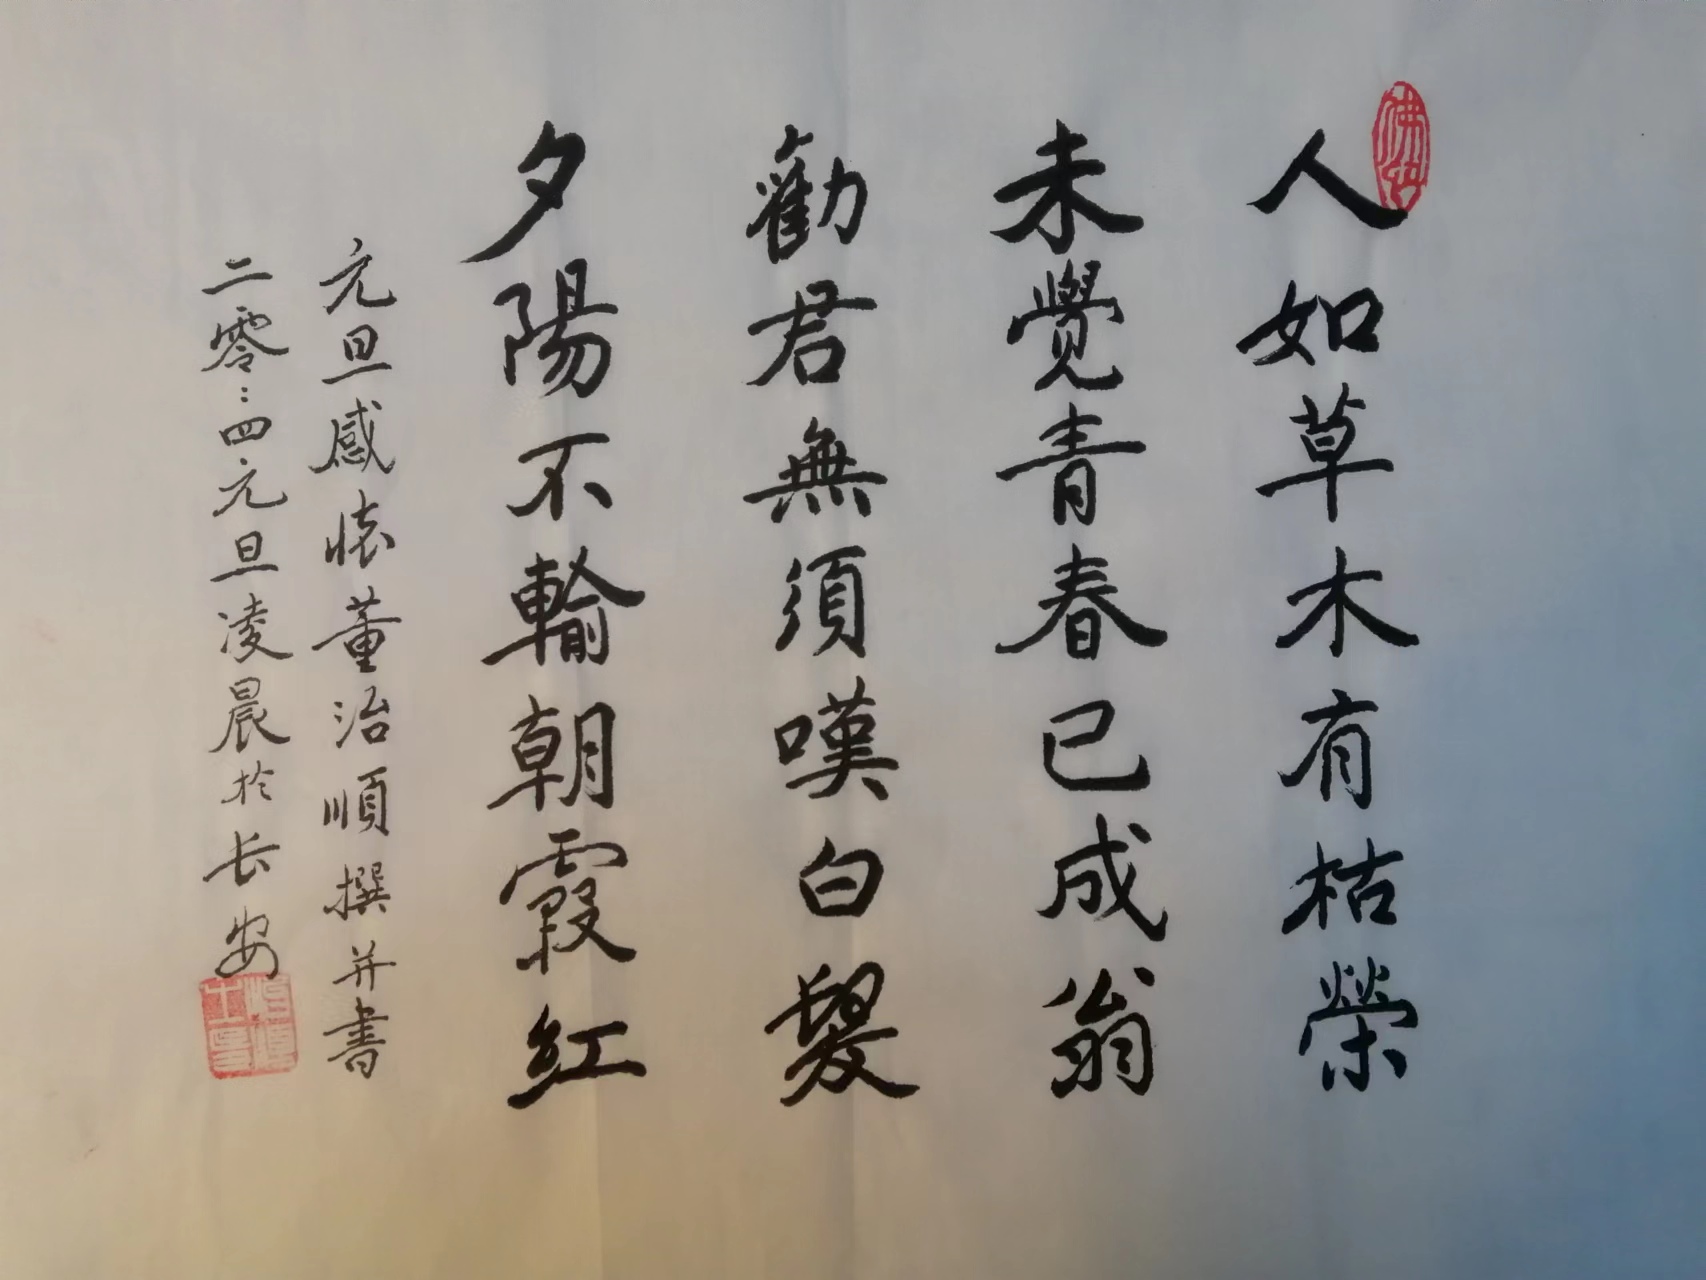 人如草木有枯榮
未覺青春已成翁
勸君無須嘆白髮
夕陽不輸朝霞紅
元旦感懷董治順撰并書
二零二四元旦凌晨於长安